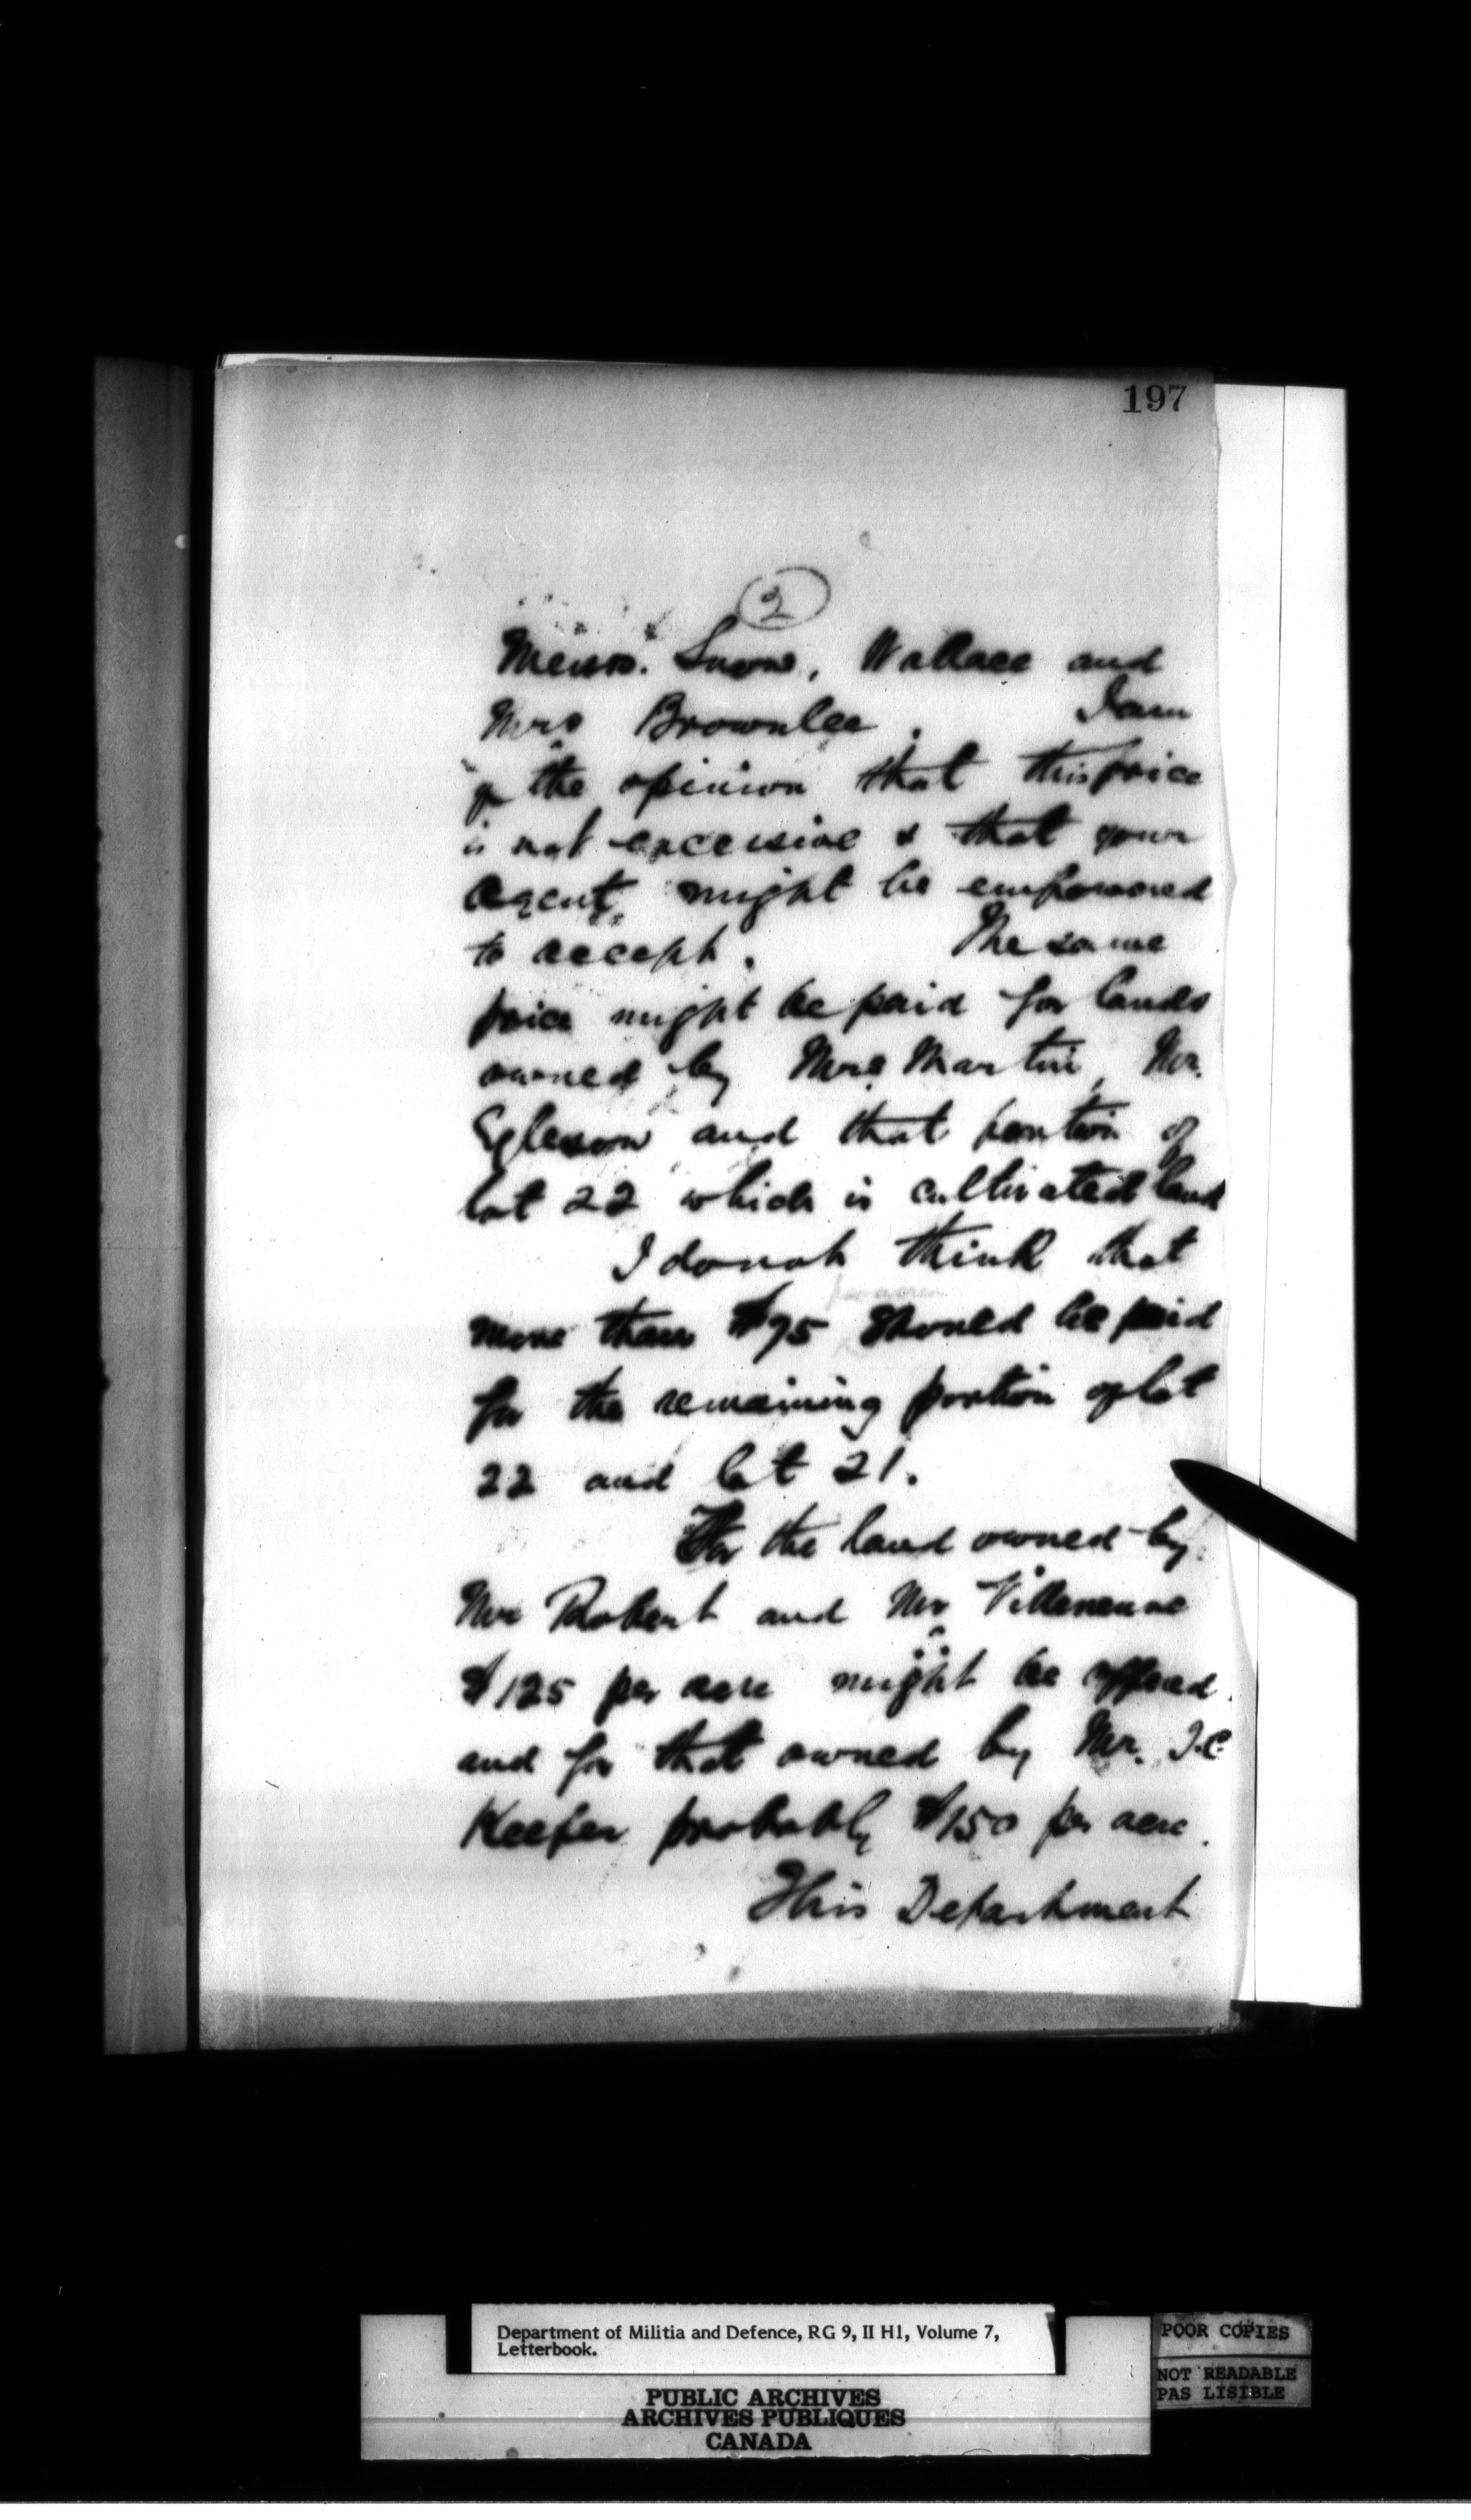 197
2
Messrs. Snow, Wallace and
Mrs Brownlee. I am
of the opinion that this price
is not excessive & that your
agent might be empowered
to accept. The same
price might be paid for lands
owned by Mrs Martin, Mr.
Egleson and that portion of
lot 22 which is cultivated land
I do not think that
per acre
more than $95 should be paid
for the remaining portion of lot
22 and lot 21.
For the land owned by
Mr Robert and Mr Villeneuve
$125 per acre might be offered
and for that owned by Mr. T.C.
Keefer probably $150 per acre.
This Department
Department of Militia and Defence, RG 9, II H1, Volume 7,
Letterbook.
POOR COPIES
NOT READABLE
PAS LISIBLE
PUBLIC ARCHIVES
ARCHIVES PUBLIQUES
CANADA